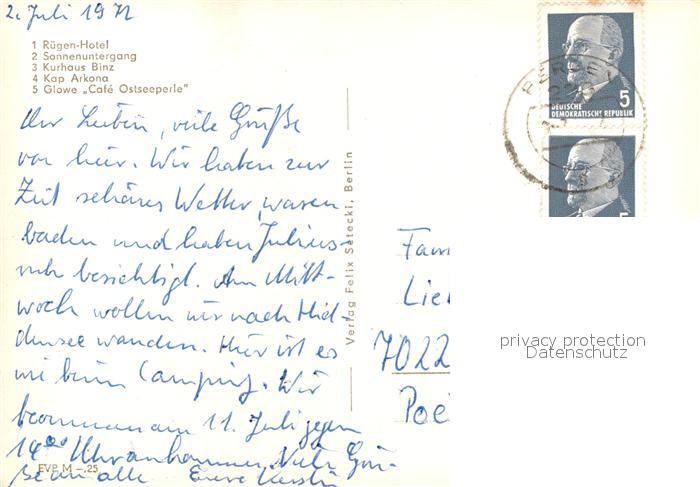 2. Juli 1972
1 Rügen-Hotel
2 Sonnenuntergang
3 Kurhaus Binz
4 Kap Arkona
5 Glowe „Café Ostseeperle"
Ihr Lieben, viele Grüße
von hier. Wir haben zur
Zeit schönes Wetter, waren
baden und haben Julius-
ruh besichtigt. Am Mitt-
woch wollen wir nach Hid-
densee wandern. Hier ist es
wie beim Camping. Wir
kommen am 11. Juli gegen
14⁰⁰ Uhr an. Viele Grü-
ße an alle Eure Kerstin
EVP M –.25
Verlag Felix Setecki, Berlin
5
DEUTSCHE
DEMOKRATISCHE REPUBLIK
5
Fam
Lie
7022
Poe
privacy protection
Datenschutz